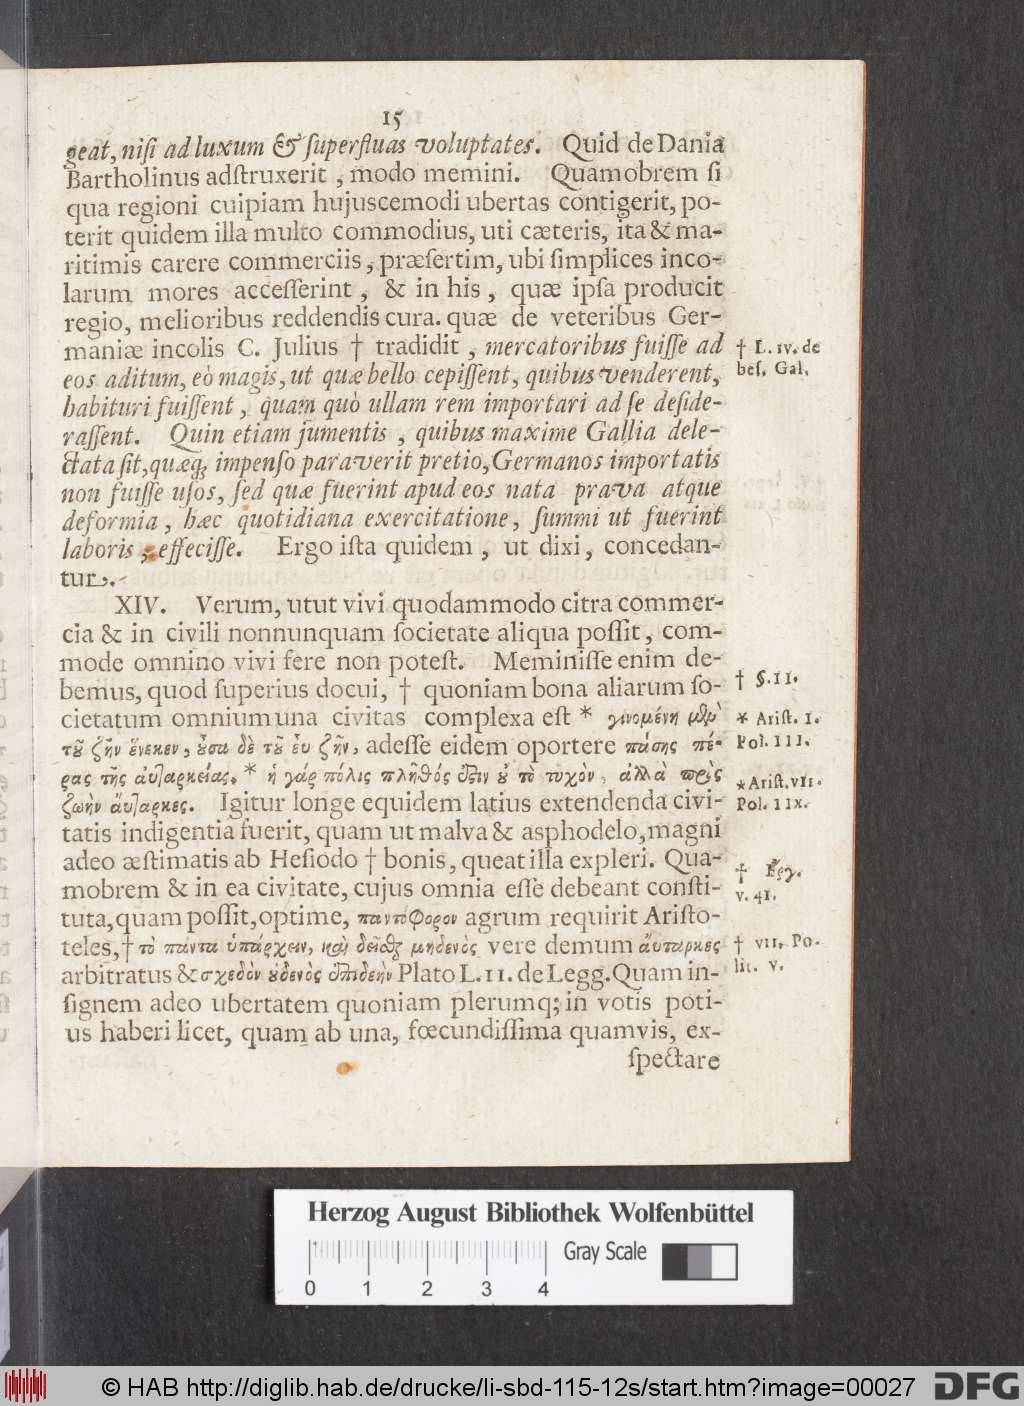 15
geat, niſi ad luxum & ſuperfluas voluptates. Quid de Dania
Bartholinus adſtruxerit, modo memini. Quamobrem ſi
qua regioni cuipiam hujuscemodi ubertas contigerit, po-
terit quidem illa multo commodius, uti cæteris, ita & ma-
ritimis carere commerciis, præſertim, ubi ſimplices inco-
larum mores acceſſerint, & in his, quæ ipſa producit
regio, melioribus reddendis cura. quæ de veteribus Ger-
maniæ incolis C. Julius † tradidit, mercatoribus fuiſſe ad
† L. IV. de
bel. Gal.
eos aditum, eò magis, ut quæ bello cepiſſent, quibus venderent,
habituri fuiſſent, quam quò ullam rem importari ad ſe deſide-
raſſent. Quin etiam jumentis, quibus maxime Gallia dele-
ctata ſit, quæq; impenſo paraverit pretio, Germanos importatis
non fuiſſe uſos, ſed quæ fuerint apud eos nata prava atque
deformia, hæc quotidiana exercitatione, ſummi ut fuerint
laboris, effeciſſe. Ergo iſta quidem, ut dixi, concedan-
tur.
XIV. Verum, utut vivi quodammodo citra commer-
cia & in civili nonnunquam ſocietate aliqua poſſit, com-
mode omnino vivi fere non poteſt. Meminiſſe enim de-
bemus, quod ſuperius docui, † quoniam bona aliarum ſo-
† §. 11.
cietatum omnium una civitas complexa eſt * γινομένη μὲν
* Ariſt. I.
Pol. III.
τοῦ ζῆν ἕνεκεν, οὖσα δὲ τοῦ εὖ ζῆν, adeſſe eidem oportere πάσης πέ-
ρας τῆς ἀυταρκείας. * ἡ γάρ πόλις πλῆθός ἐστιν οὐ τὸ τυχὸν, ἀλλὰ πρὸς
* Ariſt. VII.
Pol. IIX.
ζωὴν ἄυταρκες. Igitur longe equidem latius extendenda civi-
tatis indigentia fuerit, quam ut malva & asphodelo, magni
adeo æſtimatis ab Heſiodo † bonis, queat illa expleri. Qua-
† Ἔργ.
v. 41.
mobrem & in ea civitate, cujus omnia eſſe debeant conſti-
tuta, quam poſſit, optime, παντόφορον agrum requirit Ariſto-
teles, † τὸ πάντα ὑπάρχειν, καὶ δεῖσθαι μηδενὸς vere demum ἄυταρκες
† VII. Po-
lit. V.
arbitratus & σχεδὸν οὐδενὸς ἐπιδεὴν Plato L. II. de Legg. Quam in-
ſignem adeo ubertatem quoniam plerumq; in votis poti-
us haberi licet, quam ab una, fœcundiſſima quamvis, ex-
ſpectare
Herzog August Bibliothek Wolfenbüttel
0 1 2 3 4
Gray Scale
© HAB http://diglib.hab.de/drucke/li-sbd-115-12s/start.htm?image=00027
DFG